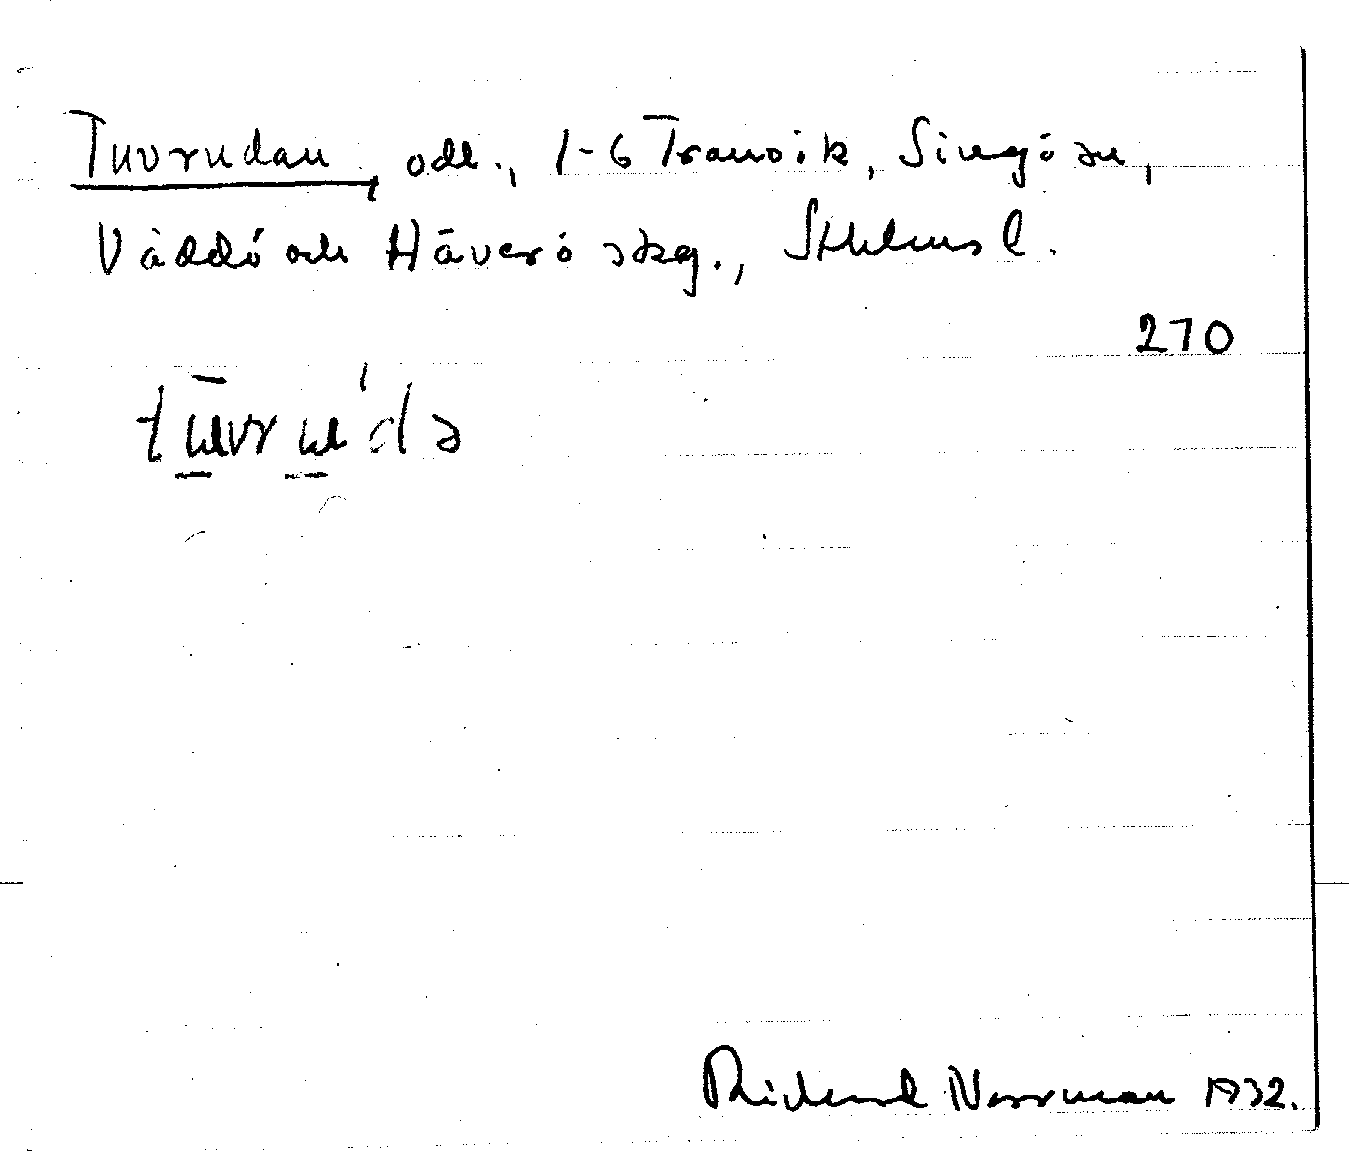 Tuvrudan, odl., 1-6 Tranvik, Singö sn,
Väddö och Häverö skg., Sthlms l.
270
Rickard Norrman 1932.